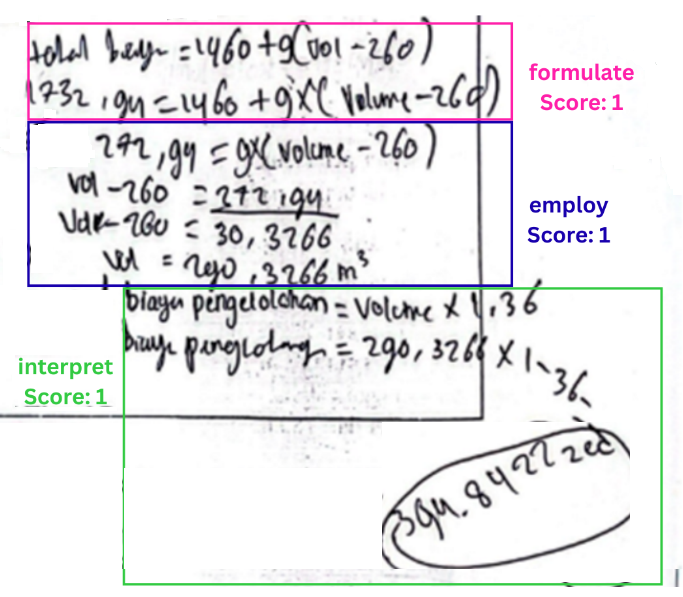 total biaya = 1460 + 9(vol - 260)
1732,94 = 1460 + 9 x ( Volume - 260)
formulate
Score: 1
272,94 = 9x( volume - 260)
vol - 260 = 272,94
Vol - 260 = 30,3266
vol = 290,3266 m³
employ
Score: 1
biaya pengelolahan = Volume x 1,36
biaya = 290,3266 x 1,36
interpret
Score: 1
394.8422 zed